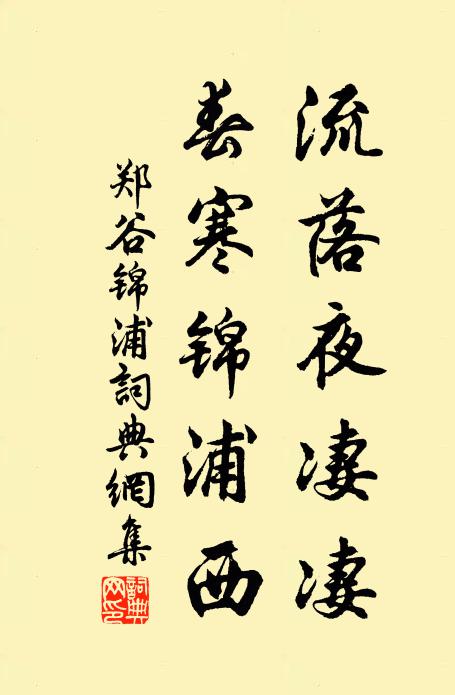 流落夜凄凄
春寒锦浦西
郑谷锦浦詞典網集
詞典網印